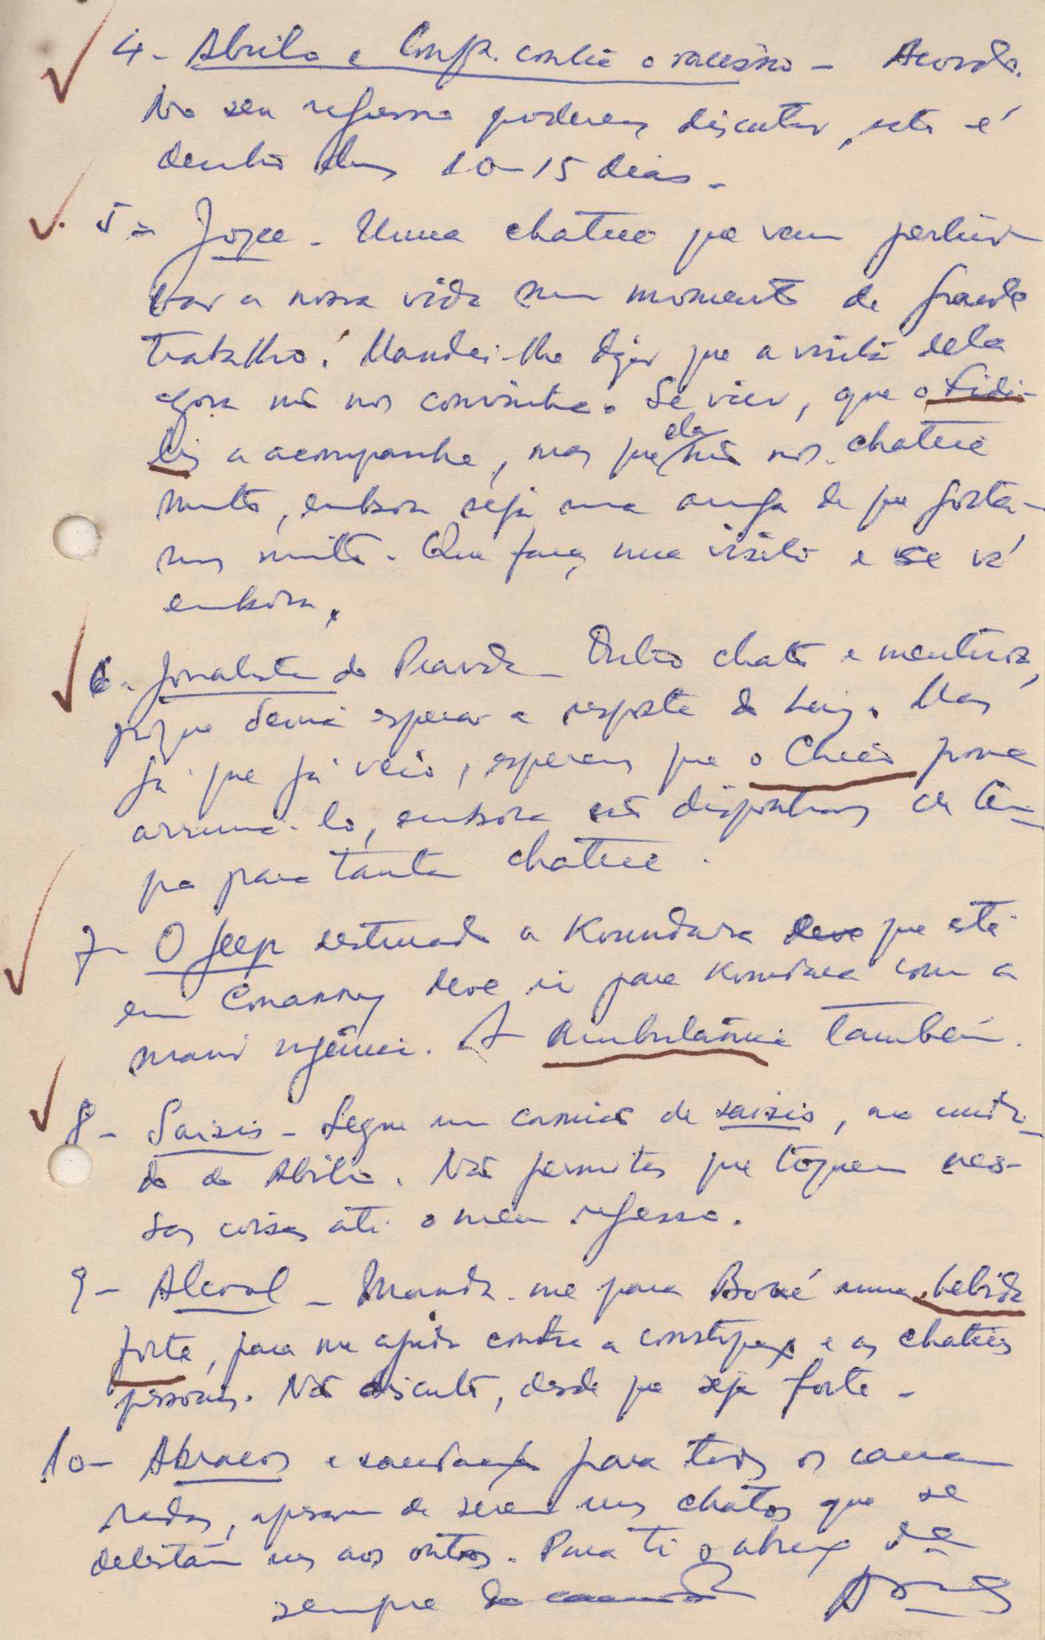 4- Abilio e Conf. contra o racismo - Acordo.
No seu regresso poderemos discutir, isto é
dentro dos 10-15 dias -
5- Joyce - Uma chatice que vem pertur-
bar a nossa vida num momento de grande
trabalho! Mandei-lhe dizer que a visita dela
agora não nos convinha. Se vier, que o Fidé-
lis a acompanhe, mas que ela não nos chateie
muito, embora seja uma amiga de que gosta-
mos muito. Que faça uma visita e se vá
embora.
6- Jornalista do Pravda - Outro chato e mentiroso,
porque devia esperar a resposta do Luiz. Mas
já que já veio, esperemos que o Chico possa
arrumá-lo, embora não disponhamos de tem-
po para tanta chatice.
7- O Jeep destinado a Koundara deve que está
em Conakry deve ir para Koundara com a
maior urgência. A ambulância também.
8- Saisis - Segue um camião de saisis, ao cuida-
do do Abilio. Não permitas que toquem nes-
sas coisas até o meu regresso.
9- Alcool - Manda-me para Boké uma bebida
forte, para me ajudar contra a constipação e as chatices
pessoais. Não discuto, desde que seja forte -
10- Abraços e saudações para todos os cama-
radas, apesar de serem uns chatos que se
detestam uns aos outros. Para ti o abraço de
sempre do